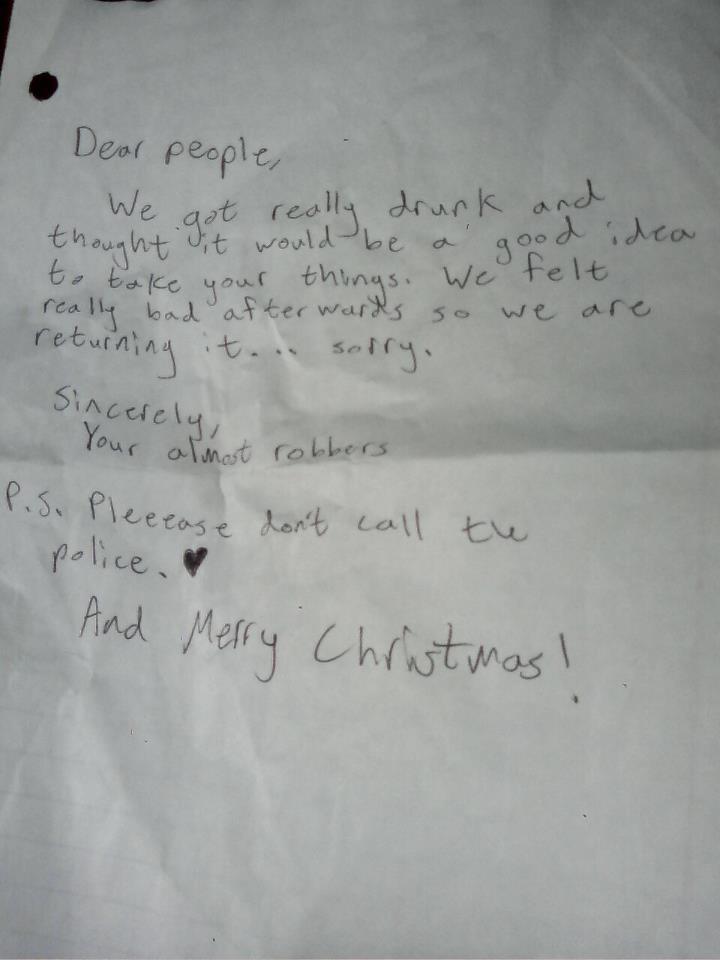 Dear people,
We got really drunk and
thought it would be a good idea
to take your things. We felt
really bad afterwards so we are
returning it... sorry.
Sincerely,
Your almost robbers
P.S. Pleeease don't call the
police. ♥
And Merry Christmas!